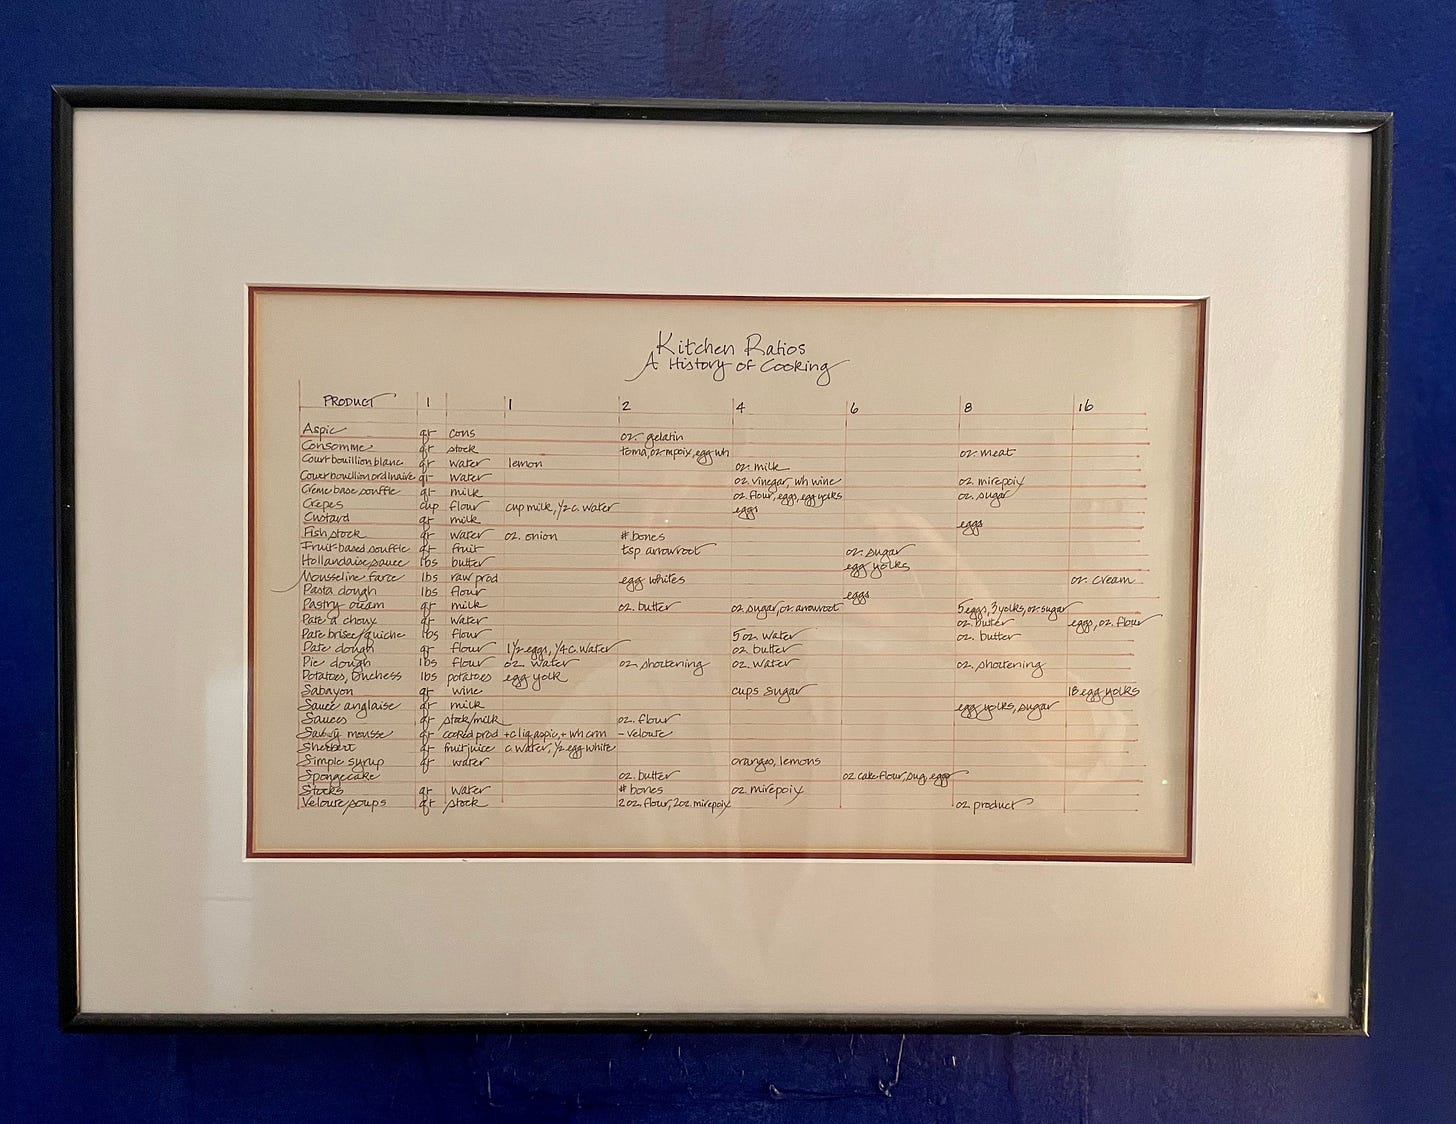 Kitchen Ratios
A History of Cooking
PRODUCT 1 1 2 4 6 8 16
Aspic qt cons oz. gelatin
Consomme qt stock toma, oz. mpoix, egg wh oz. meat
Court bouillion blanc qt water lemon oz. milk
Couer bouillion ordinaire qt water oz. vinegar, wh wine oz. mirepoix
Crème base souffle qt milk oz. flour, eggs, egg yolks oz. sugar
Crepes cup flour cup milk, 1/2 c. water eggs
Custard qt milk eggs
Fish stock qt water oz. onion # bones
Fruit-based souffle qt fruit tsp arrowroot oz. sugar
Hollandaise sauce lbs butter egg yolks
Mousseline farce lbs raw prod egg whites oz. cream
Pasta dough lbs flour eggs
Pastry cream qt milk oz. butter oz. sugar, oz. arrowroot 5 eggs, 3 yolks, oz. sugar
Pate a choux qt water oz. butter eggs, oz. flour
Pate brisee/quiche lbs flour 5 oz. water oz. butter
Pate dough qt flour 1 1/2 eggs, 1/4 c. water oz. butter
Pie dough lbs flour oz. water oz. shortening oz. water oz. shortening
Potatoes, Duchess lbs potatoes egg yolk
Sabayon qt wine cups sugar 18 egg yolks
Sauce anglaise qt milk egg yolks, sugar
Sauces qt stock/milk oz. flour
mousse qt cooked prod + c liq aspic, + wh crm - veloute
Sherbert qt fruit juice c. water, 1/2 egg white
Simple syrup qt water oranges, lemons
Spongecake oz. butter oz cake flour, sug, eggs
Stocks qt water # bones oz mirepoix
Veloute/soups qt stock 2 oz. flour, 2 oz. mirepoix oz product